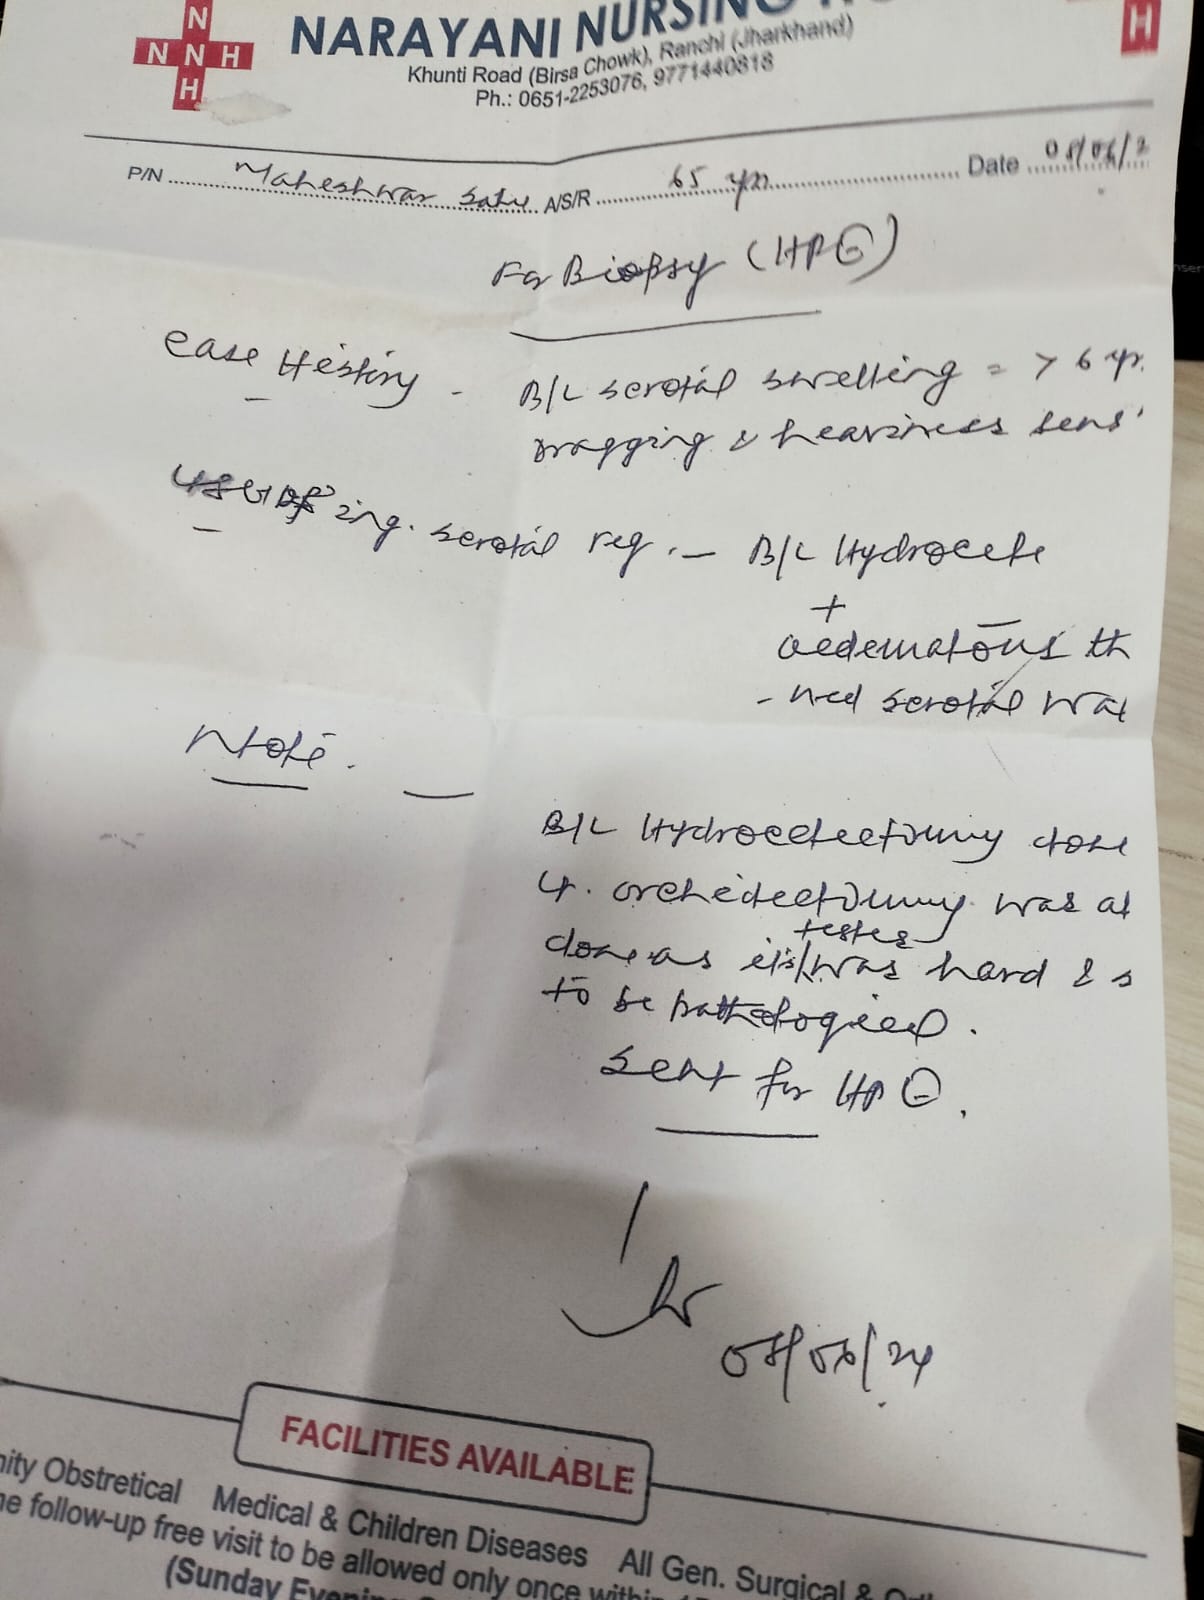 N
N N H
H
NARAYANI NURSING HO
H
Khunti Road (Birsa Chowk), Ranchi (Jharkhand)
Ph.: 0651-2253076, 9771440818
P/N Maheshwar Sahu A/S/R 65 yrs Date 08/06/2
For Biopsy (HPE)
Case History - B/L scrotal swelling = > 6 yr.
Dragging & heaviness sens
USG of ing. scrotal reg. - B/L Hydrocele
+
oedematous th
- ned scrotal wal
Note. —
B/L Hydrocelectomy done
Lt. orchidectomy was al
testes
done as its/was hard & s
to be pathological.
Sent for HPE.
08/06/24
FACILITIES AVAILABLE
nity Obstretical Medical & Children Diseases All Gen. Surgical &
ne follow-up free visit to be allowed only once within
(Sunday Evening